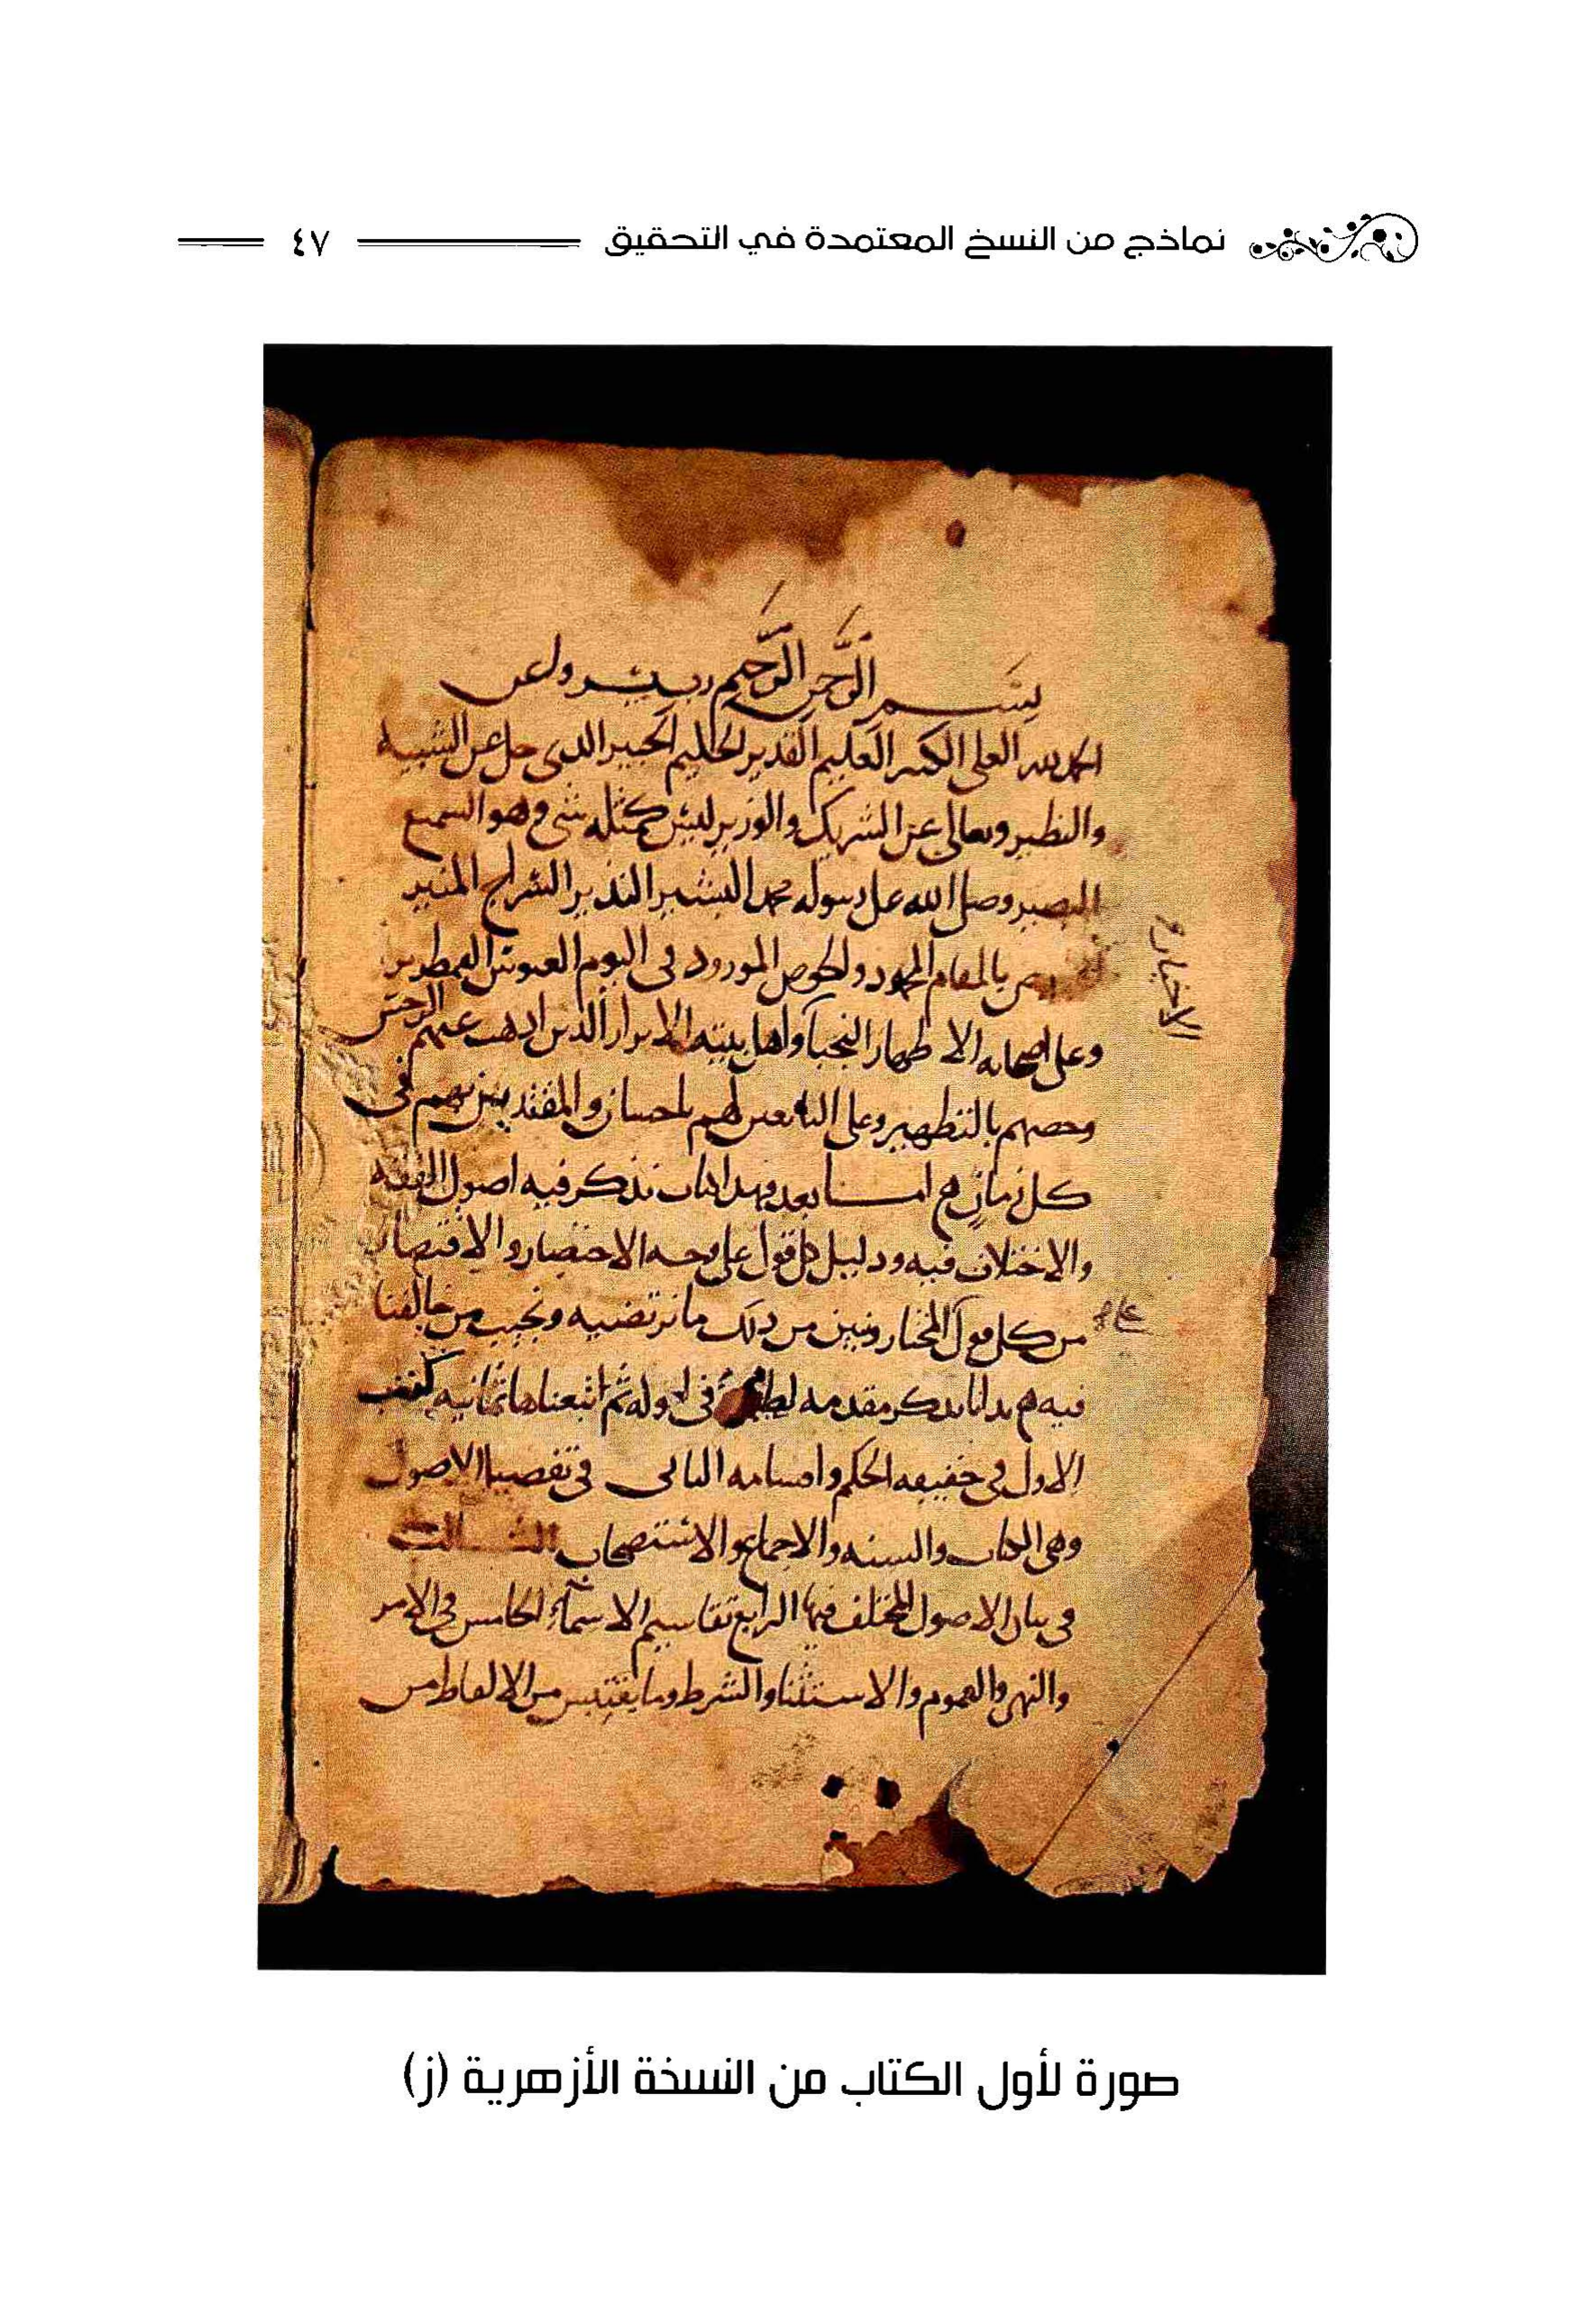 نماذج من النسخ المعتمدة في التحقيق ٤٧
بسم الرحمن الرحيم رب يسر ولعن
الحمد لله العلي الكبير العليم القدير الحليم الخبير الدى جل عن الشبيه
والنظير وتعالى عن الشريك والوزير ليس كمثله شي وهو السميع
البصير وصلى الله على رسوله محمد البشير النذير السراج المنير
بالمقام المحمود والحوض المورود في اليوم العبوس القمطرير
وعلى اصحابه الاطهار النجبا واهل بيته الابرار الذين ادهب عنهم الرجس
وخصهم بالتطهير وعلى التابعين لهم باحسان والمقتدين بهم في
كل زمان اما بعد فهدا كتاب نذكر فيه اصول الفقه
والاختلاف فيه ودليل كل قول على وجه الاختصار والاقتصار
من كل قول المختار ونبين من دلك ما نرتضيه ونجيب من خالفنا
فيه بدانا بدكر مقدمه لطيفة في اوله ثم اتبعناها ثمانيه كتب
الاول في حقيقه الحكم واقسامه الثاني في تفصيل الاصول
وهي الكتاب والسنه والاجماع والاستصحاب الثالث
في بيان الاصول المختلف فيها الرابع تقاسيم الاسماء الخامس في الامر
والنهي والعموم والاستثنا والشرط وما يقتبس من الالفاظ من
صورة لأول الكتاب من النسخة الأزهرية (ز)